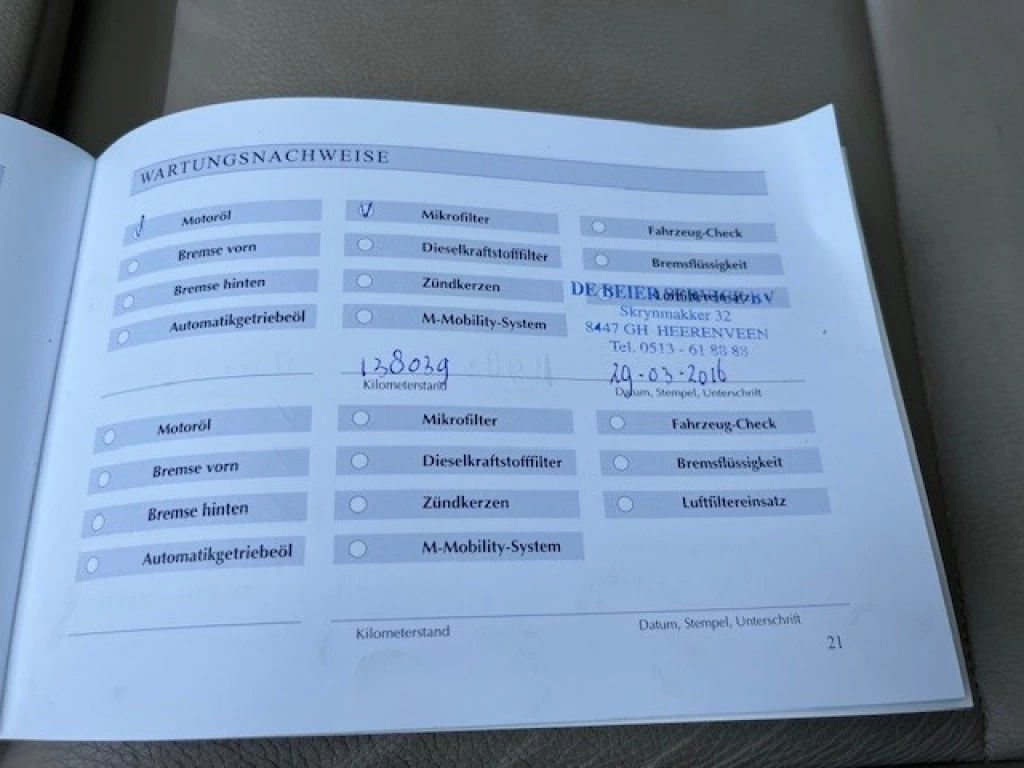 WARTUNGSNACHWEISE
Motoröl Mikrofilter Fahrzeug-Check
Bremse vorn Dieselkraftstofffilter Bremsflüssigkeit
Bremse hinten Zündkerzen Luftfiltereinsatz
DE BEIER SERVICE BV
Skrynmakker 32
Automatikgetriebeöl M-Mobility-System
8447 GH HEERENVEEN
Tel. 0513 - 61 88 88
138039 29-03-2016
Kilometerstand Datum, Stempel, Unterschrift
Motoröl Mikrofilter Fahrzeug-Check
Bremse vorn Dieselkraftstofffilter Bremsflüssigkeit
Bremse hinten Zündkerzen Luftfiltereinsatz
Automatikgetriebeöl M-Mobility-System
Kilometerstand Datum, Stempel, Unterschrift
21